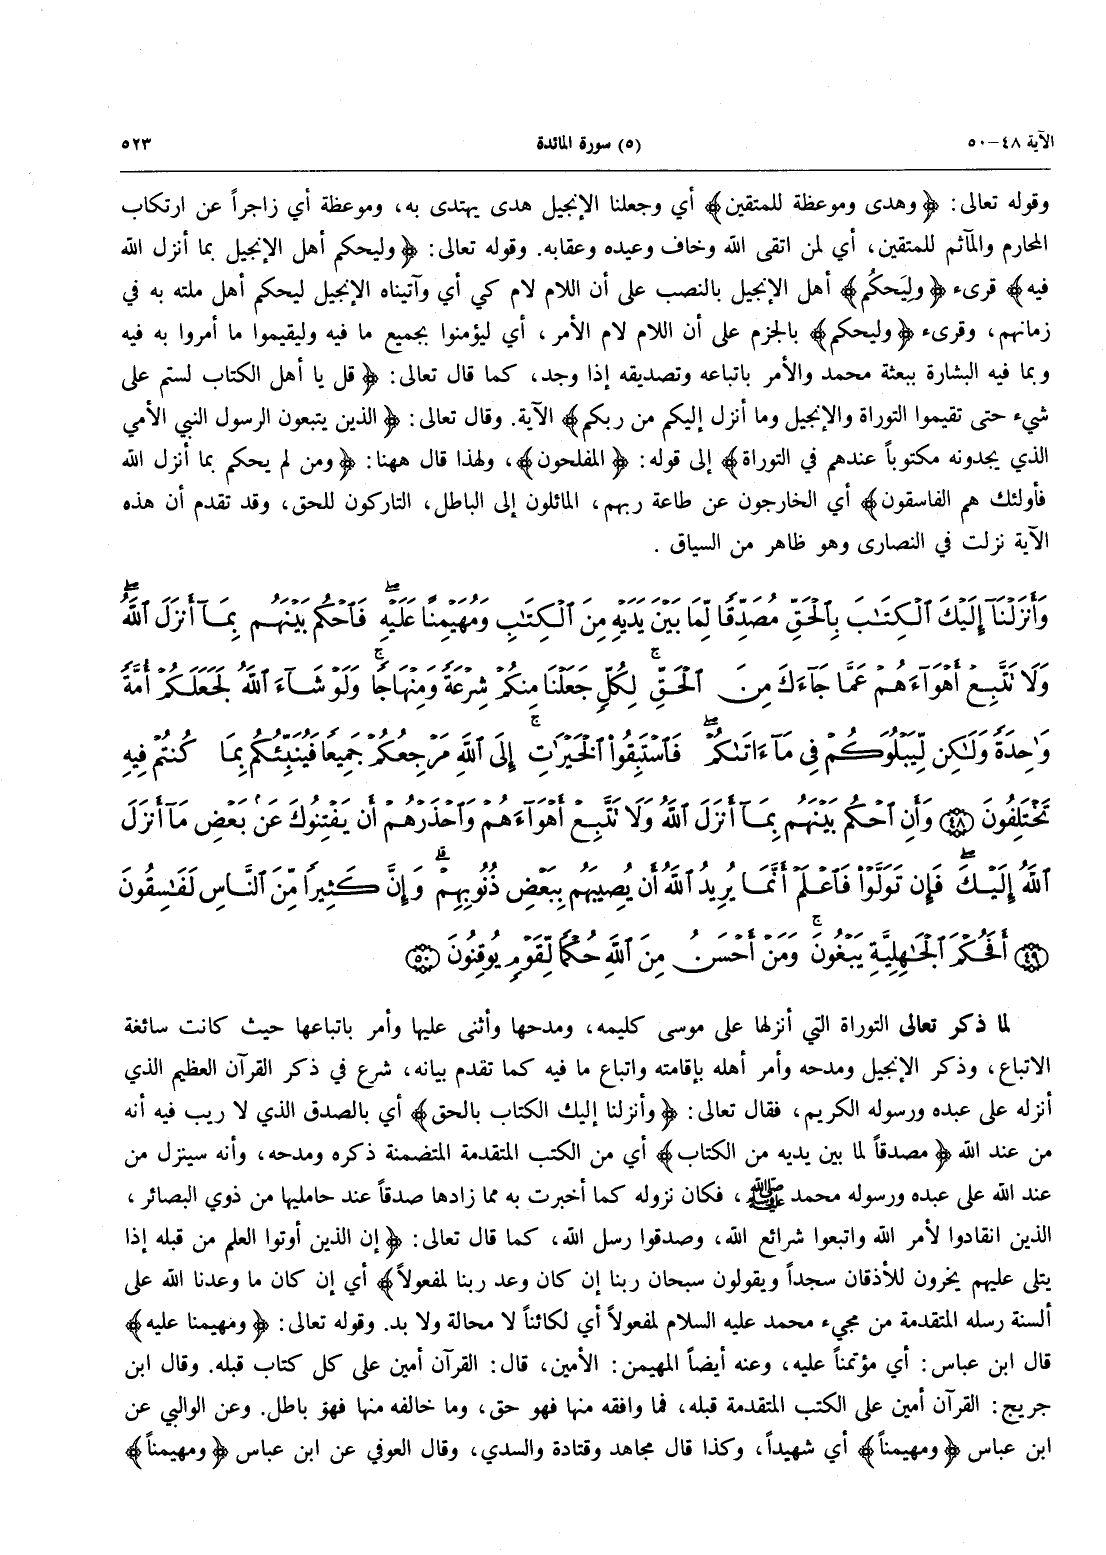 الآية ٤٨-٥٠
(٥) سورة المائدة
٥٢٣
وقوله تعالى: ﴿وهدى وموعظة للمتقين﴾ أي وجعلنا الإنجيل هدى يهتدى به، وموعظة أي زاجراً عن ارتكاب
المحارم والمآثم للمتقين، أي لمن اتقى الله وخاف وعيده وعقابه. وقوله تعالى: ﴿وليحكم أهل الإنجيل بما أنزل الله
فيه﴾ قرىء ﴿وليَحكُم﴾ أهل الإنجيل بالنصب على أن اللام لام كي أي وآتيناه الإنجيل ليحكم أهل ملته به في
زمانهم، وقرىء ﴿وليحكم﴾ بالجزم على أن اللام لام الأمر، أي ليؤمنوا بجميع ما فيه وليقيموا ما أمروا به فيه
وبما فيه البشارة ببعثة محمد والأمر باتباعه وتصديقه إذا وجد، كما قال تعالى: ﴿قل يا أهل الكتاب لستم على
شيء حتى تقيموا التوراة والإنجيل وما أنزل إليكم من ربكم﴾ الآية. وقال تعالى: ﴿الذين يتبعون الرسول النبي الأمي
الذي يجدونه مكتوباً عندهم في التوراة﴾ إلى قوله: ﴿المفلحون﴾، ولهذا قال ههنا: ﴿ومن لم يحكم بما أنزل الله
فأولئك هم الفاسقون﴾ أي الخارجون عن طاعة ربهم، المائلون إلى الباطل، التاركون للحق، وقد تقدم أن هذه
الآية نزلت في النصارى وهو ظاهر من السياق .
وَأَنزَلْنَآ إِلَيْكَ ٱلْكِتَٰبَ بِٱلْحَقِّ مُصَدِّقًا لِّمَا بَيْنَ يَدَيْهِ مِنَ ٱلْكِتَٰبِ وَمُهَيْمِنًا عَلَيْهِۖ فَٱحْكُم بَيْنَهُم بِمَآ أَنزَلَ ٱللَّهُۖ
وَلَا تَتَّبِعْ أَهْوَآءَهُمْ عَمَّا جَآءَكَ مِنَ ٱلْحَقِّۚ لِكُلٍّ جَعَلْنَا مِنكُمْ شِرْعَةً وَمِنْهَاجًاۚ وَلَوْ شَآءَ ٱللَّهُ لَجَعَلَكُمْ أُمَّةً
وَٰحِدَةً وَلَٰكِن لِّيَبْلُوَكُمْ فِى مَآ ءَاتَىٰكُمْۖ فَٱسْتَبِقُوا۟ ٱلْخَيْرَٰتِۚ إِلَى ٱللَّهِ مَرْجِعُكُمْ جَمِيعًا فَيُنَبِّئُكُم بِمَا كُنتُمْ فِيهِ
تَخْتَلِفُونَ ﴿٤٨﴾ وَأَنِ ٱحْكُم بَيْنَهُم بِمَآ أَنزَلَ ٱللَّهُ وَلَا تَتَّبِعْ أَهْوَآءَهُمْ وَٱحْذَرْهُمْ أَن يَفْتِنُوكَ عَنۢ بَعْضِ مَآ أَنزَلَ
ٱللَّهُ إِلَيْكَۖ فَإِن تَوَلَّوْا۟ فَٱعْلَمْ أَنَّمَا يُرِيدُ ٱللَّهُ أَن يُصِيبَهُم بِبَعْضِ ذُنُوبِهِمْۗ وَإِنَّ كَثِيرًا مِّنَ ٱلنَّاسِ لَفَٰسِقُونَ
﴿٤٩﴾ أَفَحُكْمَ ٱلْجَٰهِلِيَّةِ يَبْغُونَۚ وَمَنْ أَحْسَنُ مِنَ ٱللَّهِ حُكْمًا لِّقَوْمٍ يُوقِنُونَ ﴿٥٠﴾
لما ذكر تعالى التوراة التي أنزلها على موسى كليمه، ومدحها وأثنى عليها وأمر باتباعها حيث كانت سائغة
الاتباع، وذكر الإنجيل ومدحه وأمر أهله بإقامته واتباع ما فيه كما تقدم بيانه، شرع في ذكر القرآن العظيم الذي
أنزله على عبده ورسوله الكريم، فقال تعالى: ﴿وأنزلنا إليك الكتاب بالحق﴾ أي بالصدق الذي لا ريب فيه أنه
من عند الله ﴿مصدقاً لما بين يديه من الكتاب﴾ أي من الكتب المتقدمة المتضمنة ذكره ومدحه، وأنه سينزل من
عند الله على عبده ورسوله محمد ﷺ، فكان نزوله كما أخبرت به مما زادها صدقاً عند حامليها من ذوي البصائر،
الذين انقادوا لأمر الله واتبعوا شرائع الله، وصدقوا رسل الله، كما قال تعالى: ﴿إن الذين أوتوا العلم من قبله إذا
يتلى عليهم يخرون للأذقان سجداً ويقولون سبحان ربنا إن كان وعد ربنا لمفعولاً﴾ أي إن كان ما وعدنا الله على
ألسنة رسله المتقدمة من مجيء محمد عليه السلام لمفعولاً أي لكائناً لا محالة ولا بد. وقوله تعالى: ﴿ومهيمنا عليه﴾
قال ابن عباس: أي مؤتمناً عليه، وعنه أيضاً المهيمن: الأمين، قال: القرآن أمين على كل كتاب قبله. وقال ابن
جريج: القرآن أمين على الكتب المتقدمة قبله، فما وافقه منها فهو حق، وما خالفه منها فهو باطل. وعن الوالبي عن
ابن عباس ﴿ومهيمناً﴾ أي شهيداً، وكذا قال مجاهد وقتادة والسدي، وقال العوفي عن ابن عباس ﴿ومهيمناً﴾